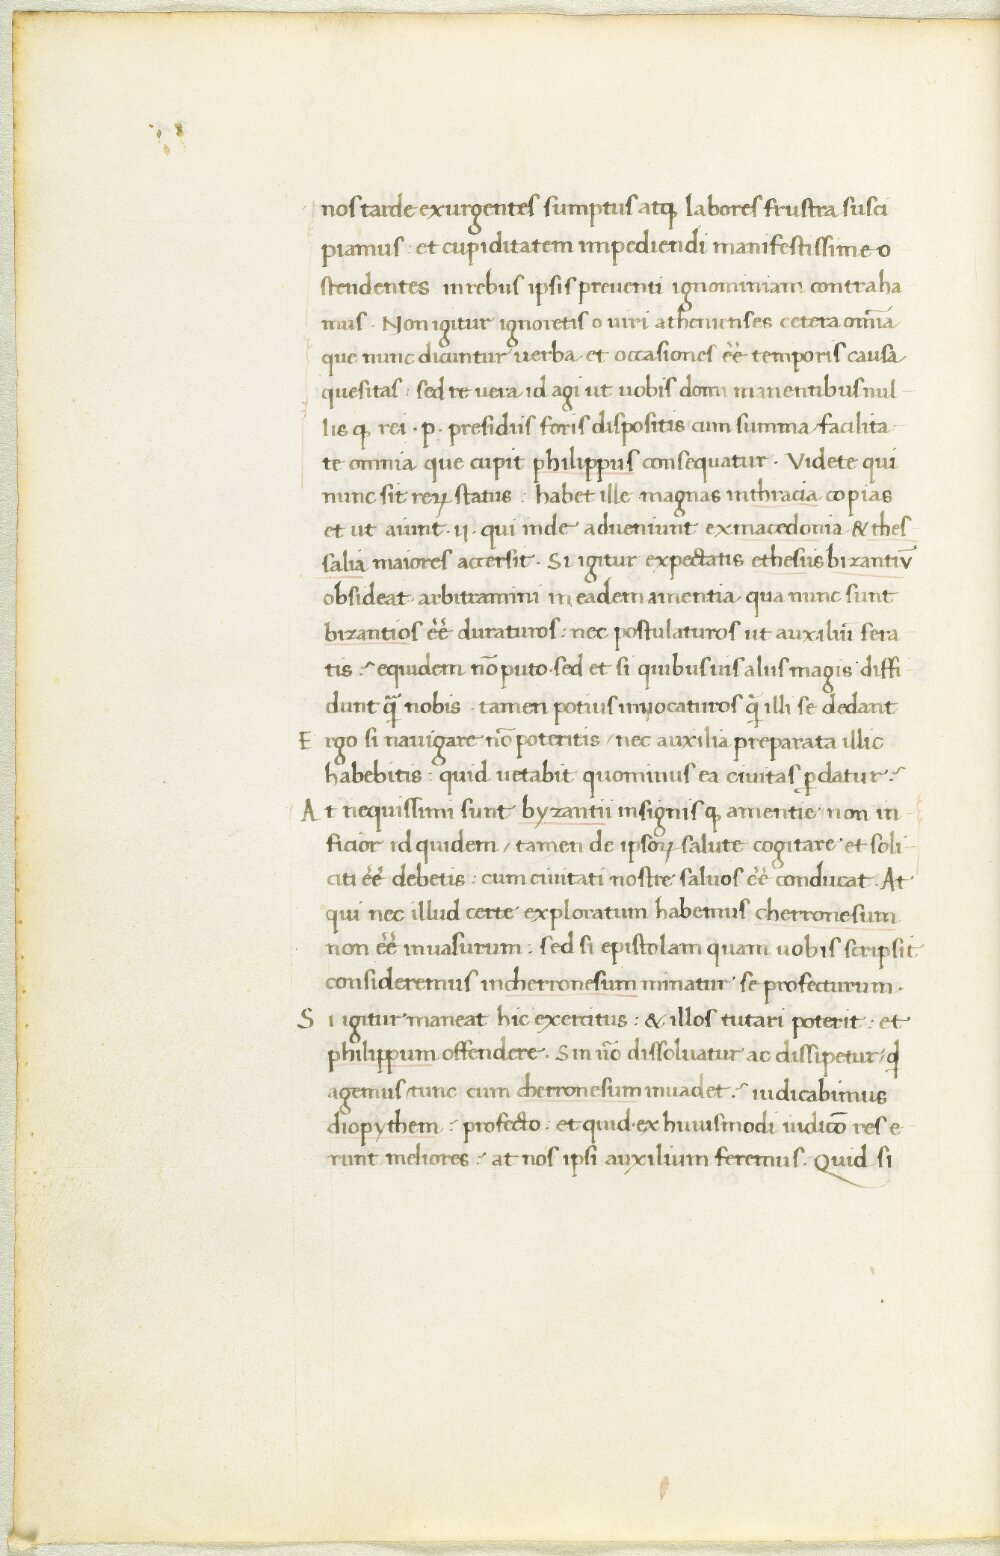 nos tarde exurgentes sumptus atq labores frustra susci
piamus : et cupiditatem impediendi manifestissime o
stendentes in rebus ipsis preventi ignominiam contraha
mus . Non igitur ignoretis o viri athenienses cetera omīa
que nunc dicuntur verba et occasiones eē temporis causa
quesitas : sed re vera id agi ut vobis domi manentibus nul
lis q rei · p · presidiis foris dispositis cum summa facilita
te omnia que cupit philippus consequatur . Videte qui
nunc sit reꝝ status : habet ille magnas in thracia copias
et ut aiunt · ii · qui inde adveniunt ex macedonia & thes
salia maiores accersit . Si igitur expectatis ethesiis bizantiū
obsideat arbitramini in eadem amentia qua nunc sunt
bizantios eē duraturos : nec postulaturos ut auxiliū fera
tis :~ equidem nō puto · sed et si quibusvis aliis magis diffi
dunt q̄ nobis · tamen potius invocaturos q̄ illi se dedant
Ergo si navigare nō poteritis / nec auxilia preparata illic
habebitis : quid vetabit quominus ea civitas ꝑdatur :~
At nequissimi sunt byzantii insignis q amentie non in
ficior id quidem / tamen de ipsoꝝ salute cogitare et soli
citi eē debetis : cum civitati nostre salvos eē conducat . At
qui nec illud certe exploratum habemus cherronesum
non eē invasurum : sed si epistolam quam vobis scripsit
consideremus in cherronesum minatur se profecturum .
Si igitur maneat hic exercitus : & illos tutari poterit : et
philippum offendere . Sin ūo dissolvatur ac dissipetur / qd
agemus tunc cum cherronesum invadet :~ iudicabimus
diopythem :~ profecto : et quid ex huiusmodi iudicō res e
runt meliores :~ at nos ipsi auxilium feremus . Quid si